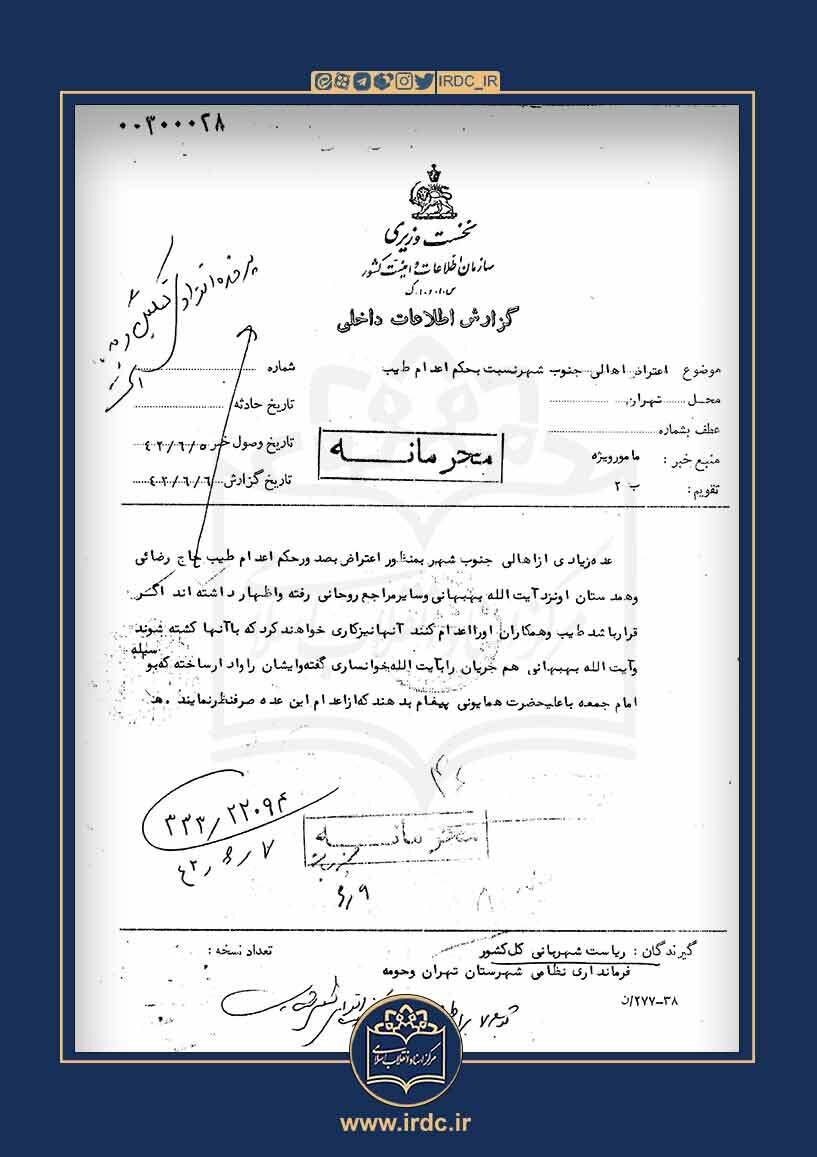 IRDC_IR
۰۰۳۰۰۰۲۸
نخست وزیری
سازمان اطلاعات و امنیت کشور
س.ا.و.ا.ک
گزارش اطلاعات داخلی
موضوع اعتراض اهالی جنوب شهر نسبت بحکم اعدام طیب
شماره
محل تهران
تاریخ حادثه
عطف بشماره
تاریخ وصول خبر ۴۲/۶/۵
منبع خبر : مامور ویژه
محرمانه
تاریخ گزارش ۴۲/۶/۶
تقویم : ب ۲
عده زیادی از اهالی جنوب شهر بمنظور اعتراض بصدور حکم اعدام طیب حاج رضائی
وهمدستان او نزد آیت الله بهبهانی وسایر مراجع روحانی رفته واظهار داشته اند اگر
قرار باشد طیب وهمکاران اورا اعدام کنند آنها نیز کاری خواهند کرد که با آنها کشته شوند
وآیت الله بهبهانی هم جریان را بآیت الله خوانساری گفته وایشان را وادار ساخته که بوسیله
امام جمعه باعلیحضرت همایونی پیغام بدهند که از اعدام این عده صرفنظر نمایند . هـ
۳۳۳/۲۲۰۹۴
۴۲/۶/۷
محرمانه
۶/۹
گیرندگان : ریاست شهربانی کل کشور
تعداد نسخه :
فرمانداری نظامی شهرستان تهران وحومه
۲۷۷-۳۸/ن
مرکز اسناد انقلاب اسلامی
www.irdc.ir